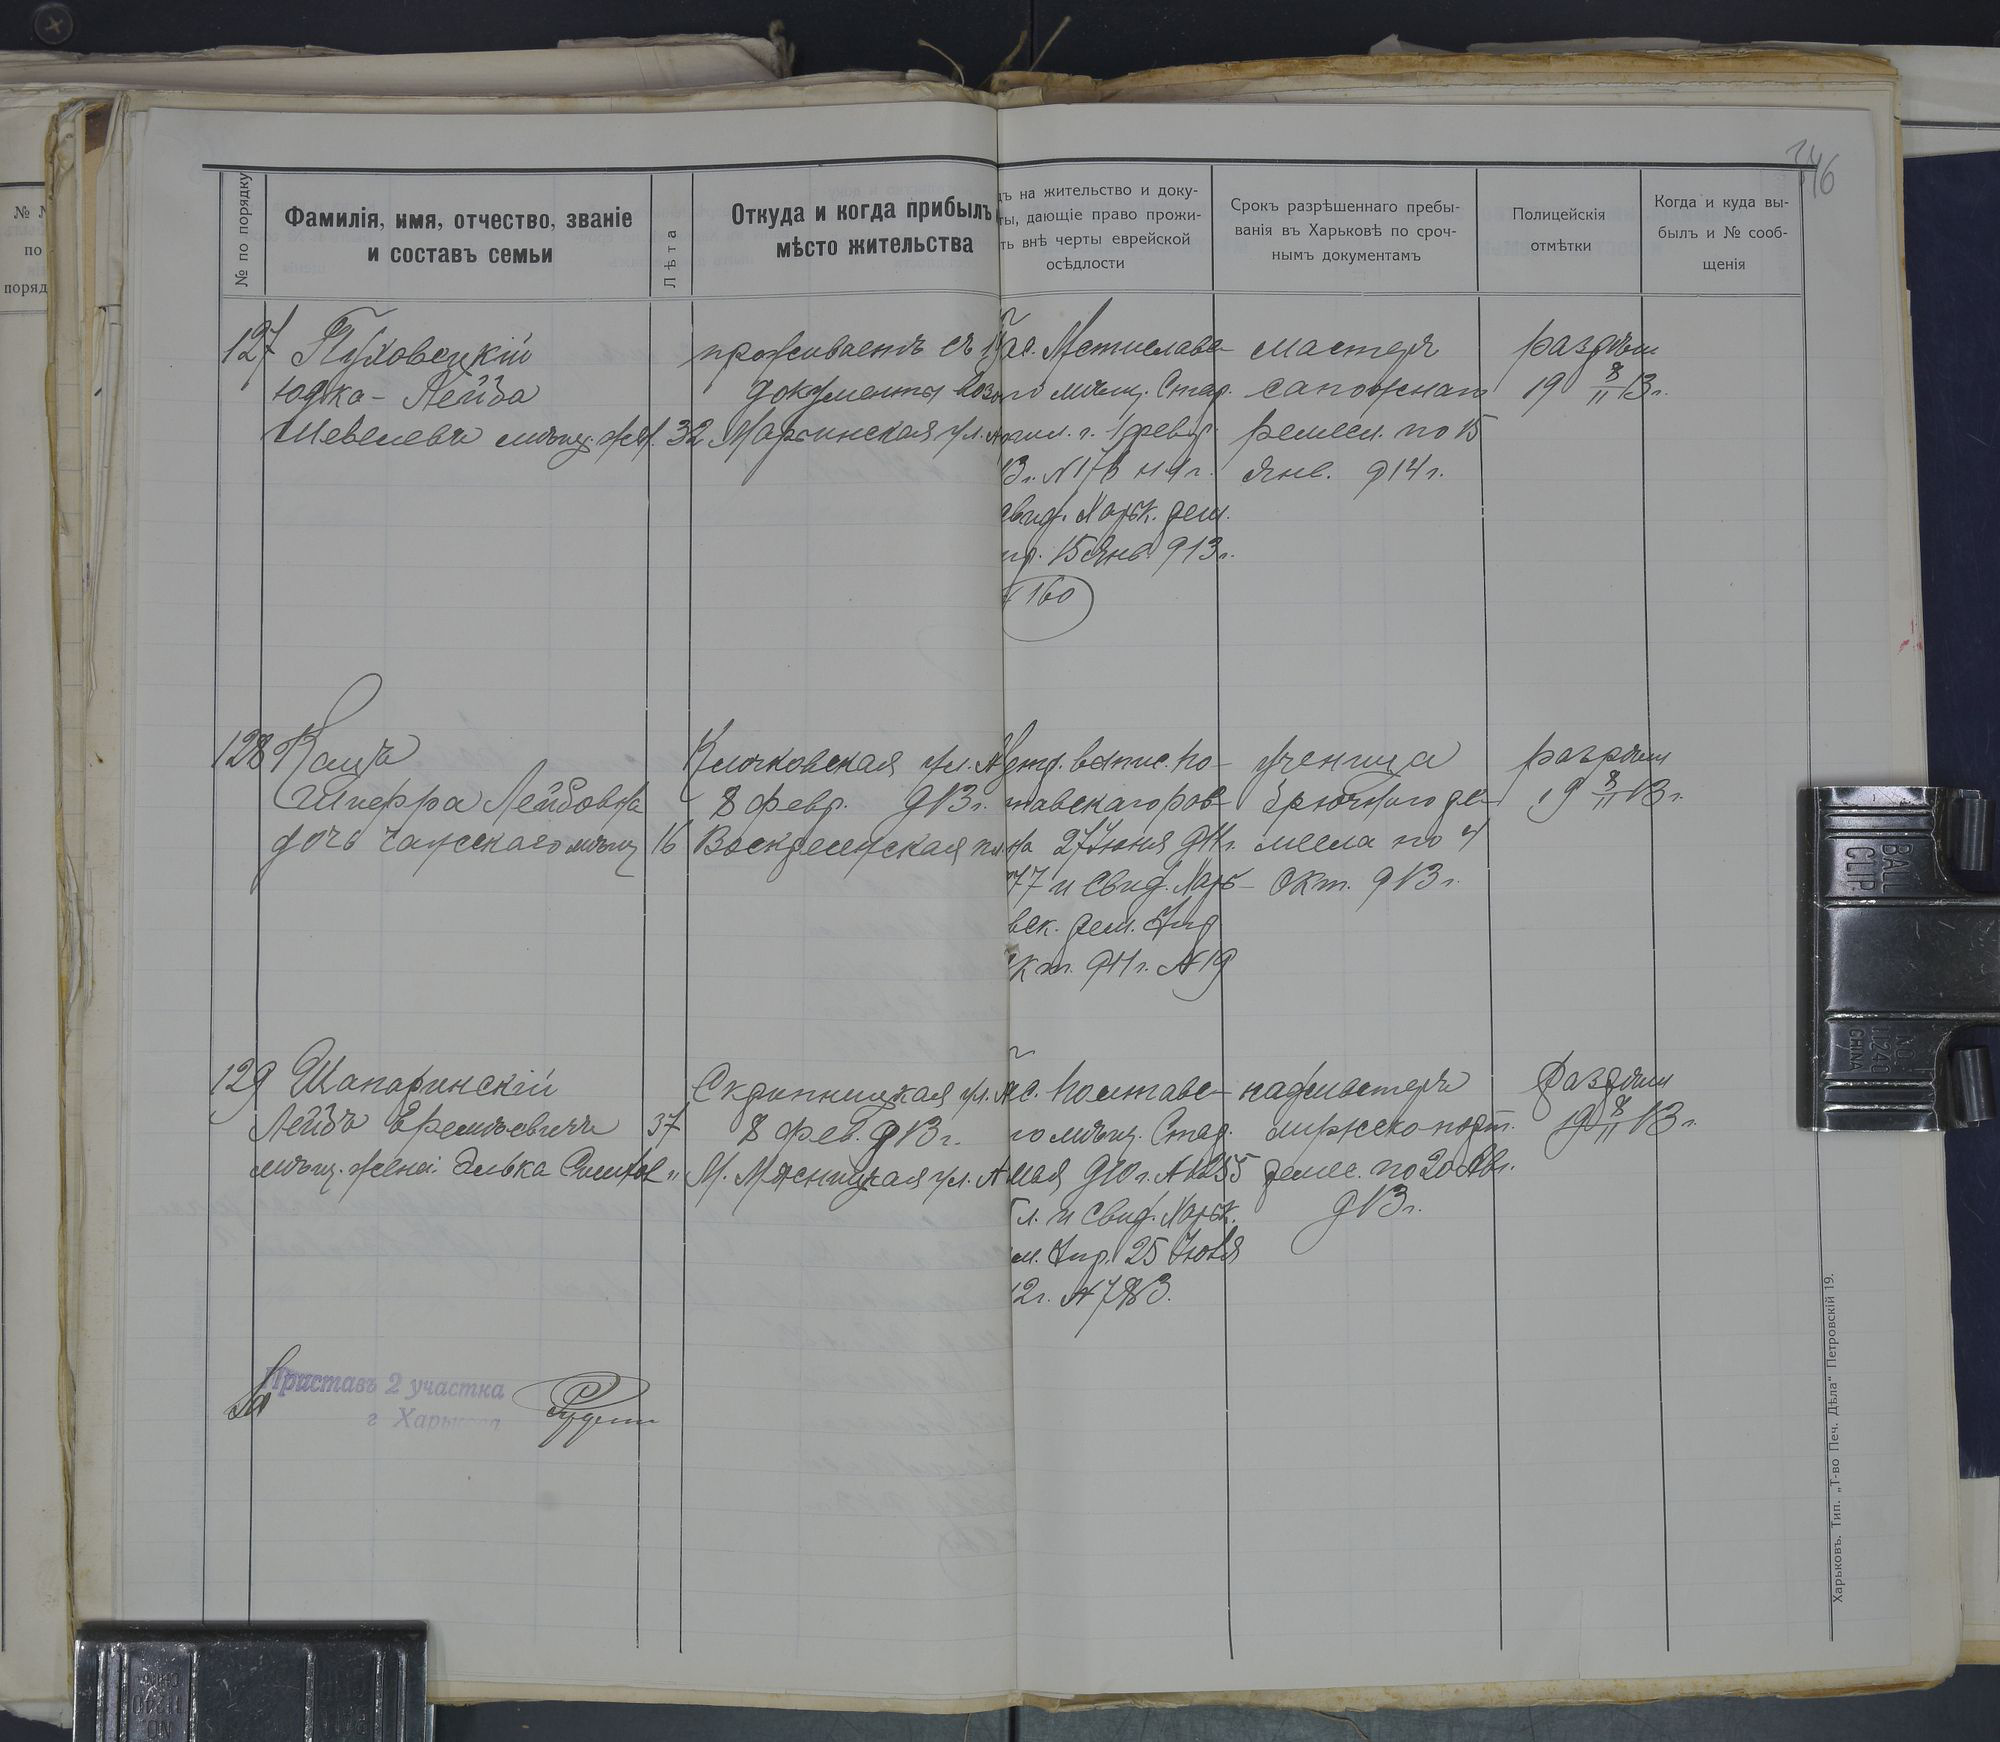 346
№ по порядку
Фамилія, имя, отчество, званіе
и составъ семьи
Лѣта
Откуда и когда прибылъ
мѣсто жительства
дъ на жительство и доку-
ты, дающіе право прожи-
ть внѣ черты еврейской
осѣдлости
Срокъ разрѣшеннаго пребы-
ванія въ Харьковѣ по сроч-
нымъ документамъ
Полицейскія
отмѣтки
Когда и куда вы-
былъ и № сооб-
щенія
№
по
поряд
127
Пуховецкій
Юдка-Лейба
Шевелевъ мѣщ.
32
проживаетъ съ
документы
Марьинская ул.
ас. Мстиславс-
го мѣщ. Стар.
г. 1 февр.
13г. № 178 н 1г.
свид. Харьк. рем.
пр. 15 Янв. 913г.
160
мастеръ
сапожнаго
ремесл. по 15
Янв. 914г.
19 8/11 13г.
128
Кацъ
Шифра Лейбовна
дочь мѣщ
16
Клочковская ул.
8 февр. 913г.
Воскресенская пл.
метр. выпис. По-
тавскаго рав-
на 27 Іюня 911г.
77 и Свид. Харь-
вск. рем. Упр
кт. 911г. № 19
ученица
ре-
месла по 4
Окт. 913г.
19 8/11 13г.
129
Шапаринскій
Лейбъ Еремѣевичъ
37
мѣщ. жена: Элька
Скрипницкая ул.
8 фев. 913г.
М. Мясницкая ул.
с. Полтавс-
го мѣщ. Стар.
мая 910г. № 1255
л. и Свид. Харьк.
м. Упр. 25 Іюня
12г.
подмастеръ
ремес. по 20 Авг.
913г.
19 8/11 13г.
За
Приставъ 2 участка
г Харькова
Харьковъ. Тип. „Т-во Печ. Дѣла“ Петровскій 19.
BALL
CLIP
NO.
11240
CHINA